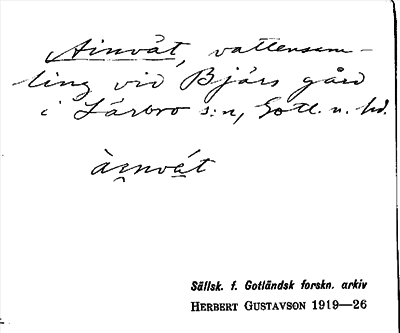 Ainvät, vattensam-
ling vid Bjärs gård
i Lärbro s:n, Gotl. n. hd.
àinvá̤t
Sällsk. f. Gotländsk forskn. arkiv
HERBERT GUSTAVSON 1919—26